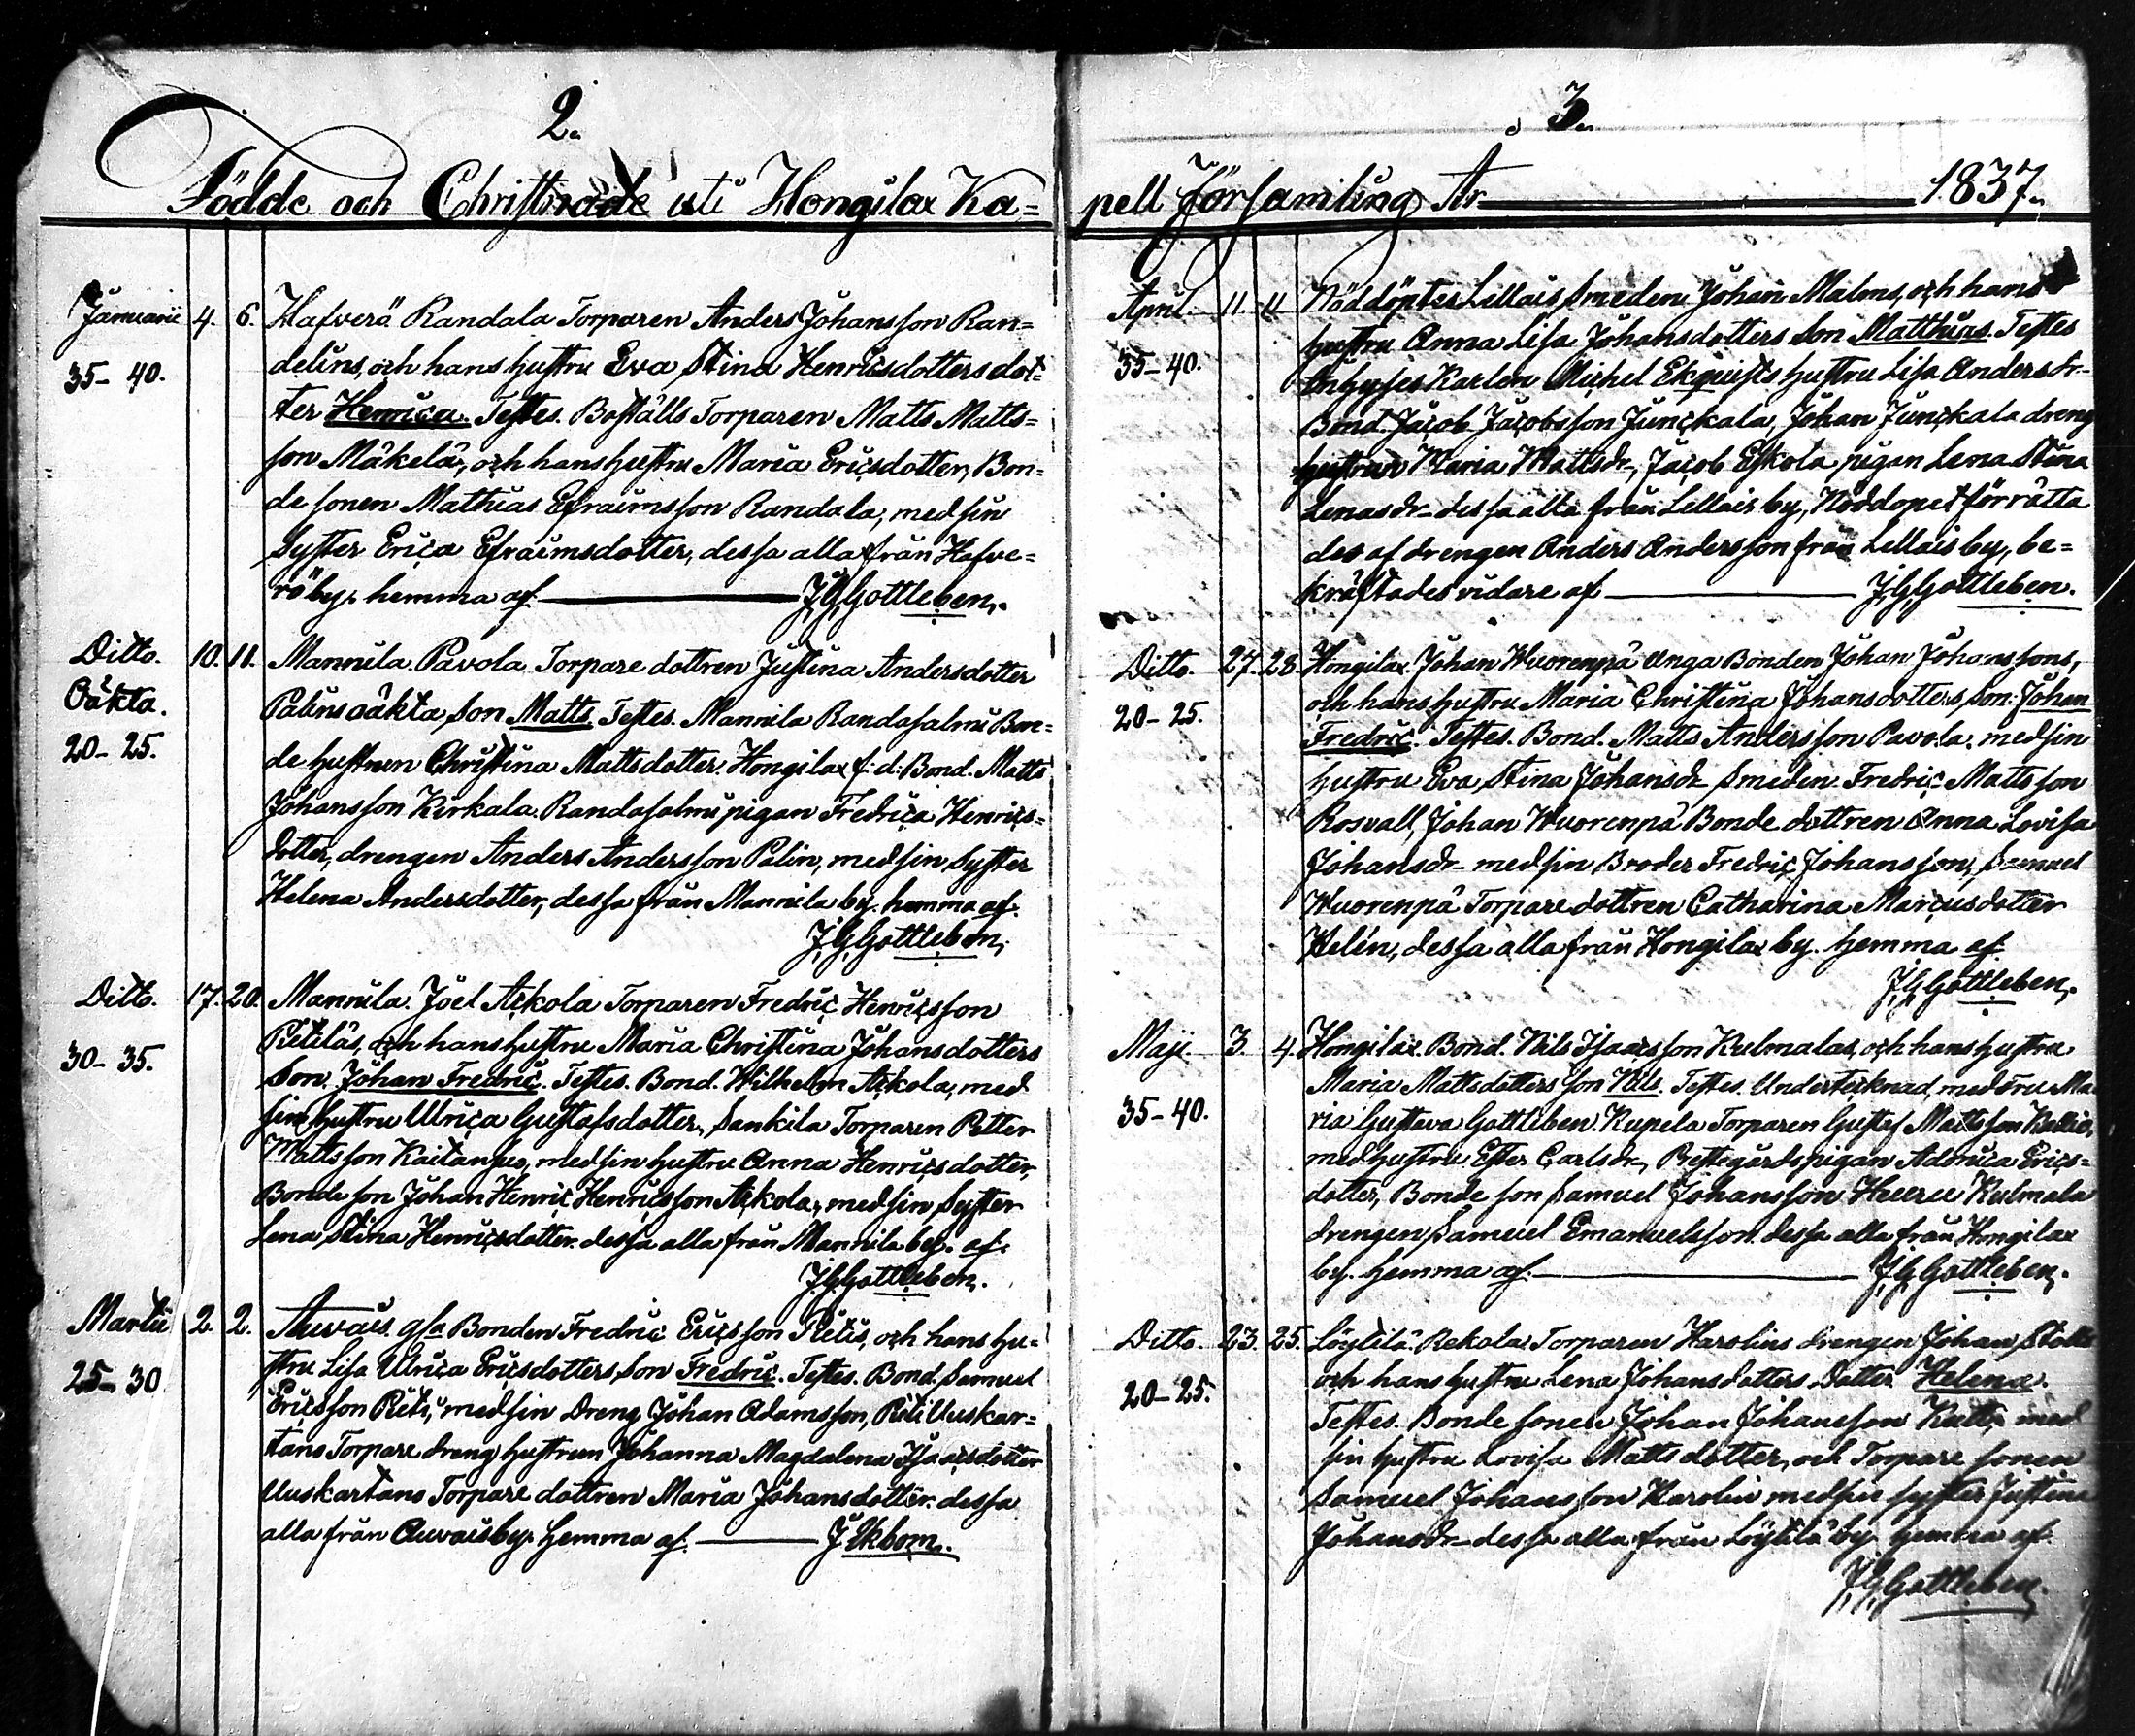 2.
Födde och Christnade uti Hongilax Ka=
Januarii 4. 6. Hafverö Randala Torparen Anders Johansson Ran=
35-40. delins, och hans hustru Eva Stina Henricsdotters dot=
ter Henrica. Testes. Boställs Torparen Matts Matts=
son Mäkelä, och hans hustru Maria Ericsdotter, Bon=
de sonen Mathias Efraimsson Randala, med sin
Syster Erica Efraimsdotter, dessa alla från Hafve=
rö by. hemma af. J.G.Gottleben.
Ditto. 10. 11. Mannila. Pavola Torpare dottren Justina Andersdotter
Oäkta. Palins oäkta son Matts. Testes. Mannila Randasalmi Bon=
20-25. de hustrun Christina Mattsdotter. Hongilax f: d: Bond. Matts
Johansson Kirkala. Randasalmi pigan Fredrica Henrics=
dotter, drengen Anders Andersson Palin, med sin Syster
Helena Andersdotter, dessa från Mannila by. hemma af.
J.G.Gottleben.
Ditto. 17. 20. Mannila. Joel Ackola Torparen Fredric Henricsson
Pitiläs, och hans hustru Maria Christina Johansdotters
30-35. Son. Johan Fredric. Testes. Bond. Wilhelm Ackola, med
sin hustru Ulrica Gustafsdotter, Sankila Torparen Petter
Mattsson Kaitansuo, med sin hustru Anna Henricsdotter,
Bonde son Johan Henric Henricsson Ackola, med sin Syster
Lena Stina Henricsdotter. dessa alla från Mannila by. af.
J.G.Gottleben.
Martii 2. 2. Auvais. Bonden Fredric Ericsson Pietis, och hans hu=
25-30 stru Lisa Ulrica Ericsdotters Son Fredric. Testes. Bond. Samuel
Ericsson Pieti, med sin Dreng Johan Adamsson, Pieti Uuskar=
tano Torpare dreng hustrun Johanna Magdalena Isaacsdotter
Uuskartano Torpare dottren Maria Johansdotter. dessa
alla från Auvais by. hemma af. J Ekbom.
3.
pell Församling År 1837.
April. 11. 11 Nöddöptes Lillais Smeden Johan Malms, och hans
hustru Anna Lisa Johansdotters Son Matthias. Testes
35-40. Inhyses Karlen Michel Ekquists hustru Lisa Andersdr.
Bond. Jacob Jacobsson Junckala, Johan Junckala dreng
hustrun Maria Mattsdr, Jacob Eskola pigan Lena Stina
Lenasdr dessa alla från Lellais by, Nöddopet förrätta
des af drengen Anders Andersson från Lellais by, be=
kräftades vidare af J.G.Gottleben.
Ditto. 27. 28. Hongilax. Johan Wuorenpä Unga Bonden Johan Johanssons,
och hans hustru Maria Christina Johansdotters, son: Johan
20-25. Fredric. Testes. Bond. Matts Andersson Pavola. med sin
hustru Eva Stina Johansdr Smeden Fredric Mattsson
Rosvall, Johan Wuorenpä Bonde dottren Anna Lovisa
Johansdr med sin Broder Fredric Johansson, Samuel
Wuorenpä Torpare dottren Catharina Marcusdotter
Helén, dessa alla från Hongilax by. hemma af.
J.G.Gottleben.
Maji. 3. 4. Hongilax. Bond. Nils Isaacsson Kulmalas, och hans hustru
Maria Mattsdotters Son Nils. Testes. Undertecknad, med Fru Ma
35-40. ria Gustava Gottleben. Kupela Torparen Gustaf Mattsson Kallio,
med hustru Ester Carlsdr, Prestegårds pigan Adorica Erics=
dotter, Bonde son Samuel Johansson Heuru Kulmala
drengen Samuel Emanuelsson. dessa alla från Hongilax
by. hemma af. J.G.Gottleben.
Ditto. 23. 25. Löytilä. Rekola Torparen Karolins drengen Johan
och hans hustru Lena Johansdotters Dotter Helena.
20-25. Testes. Bonde sonen Johan Johansson Kulla, med
sin hustru Lovisa Mattsdotter, och Torpare sonen
Samuel Johansson Karolin med sin syster Justina
Johansdr dessa alla från Löytilä by. hemma af.
J.G.Gottleben.